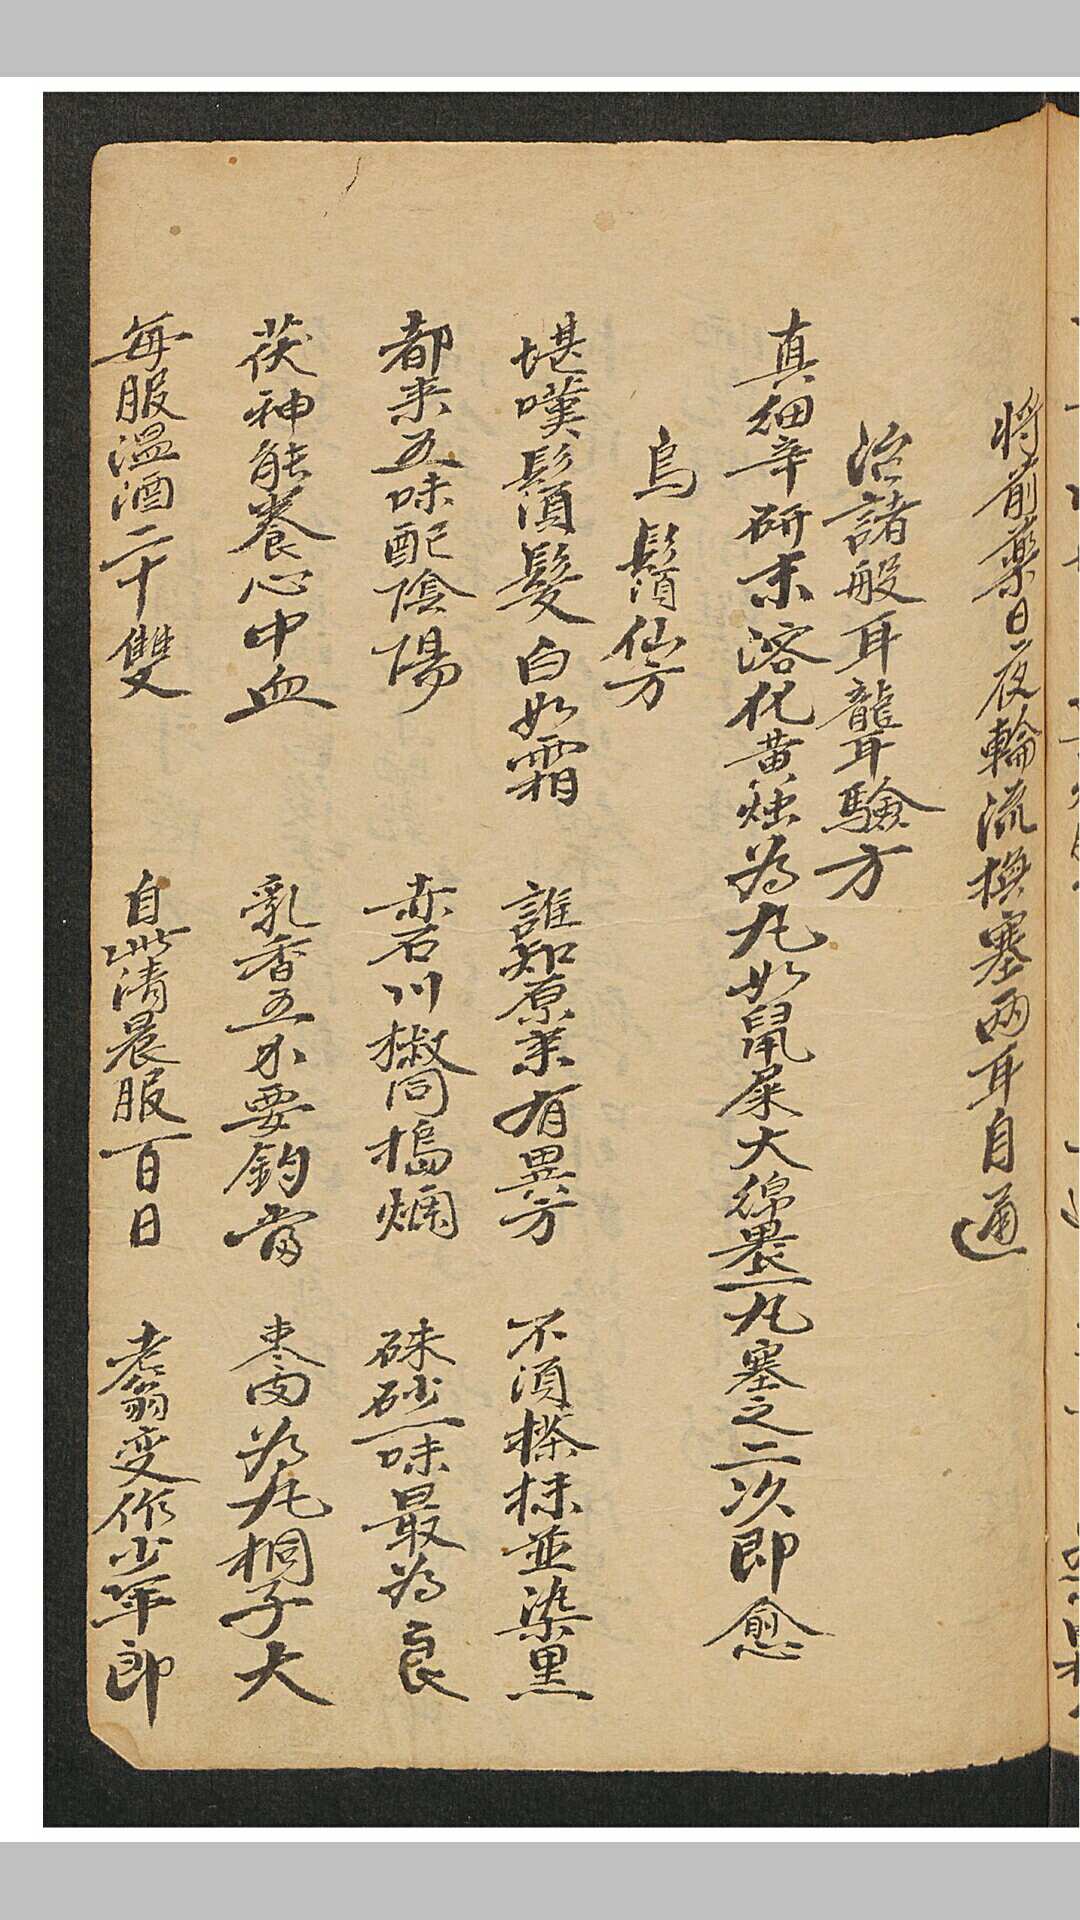 將前藥日夜輪流換塞兩耳自通
治諸般耳聾耳驗方
真細辛研末溶化黄烛為丸如鼠屎大綿裹一丸塞之二次即愈
烏鬚仙方
堪嘆鬚髮白如霜 誰知原来有異方 不須搽抹並染黑
都来五味配陰陽 赤石川椒同搗爛 硃砂一味最為良
茯神能養心中血 乳香五水要鈞當 枣肉為丸桐子大
每服温酒二十雙 自此清晨服百日 老翁变作少年郎